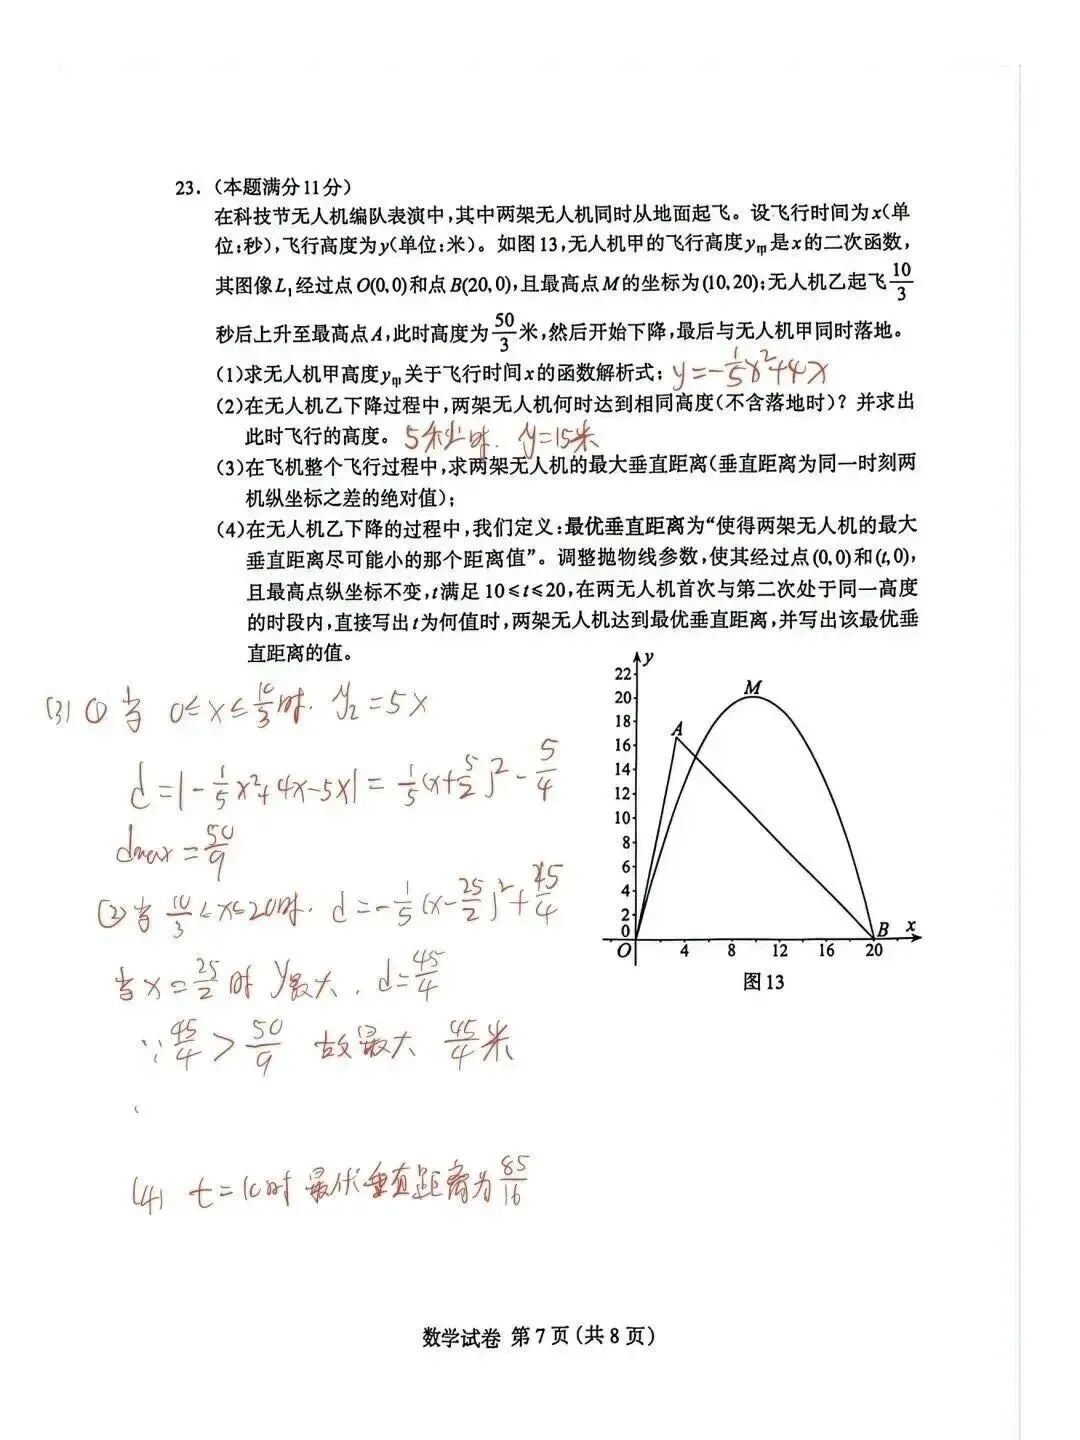 23.（本题满分11分）
在科技节无人机编队表演中,其中两架无人机同时从地面起飞。设飞行时间为x(单
位:秒),飞行高度为y(单位:米)。如图13,无人机甲的飞行高度y甲是x的二次函数,
其图像L₁经过点O(0,0)和点B(20,0),且最高点M的坐标为(10,20);无人机乙起飞10/3
秒后上升至最高点A,此时高度为50/3米,然后开始下降,最后与无人机甲同时落地。
(1)求无人机甲高度y甲关于飞行时间x的函数解析式; y=-1/5x²+4x
(2)在无人机乙下降过程中,两架无人机何时达到相同高度(不含落地时)？并求出
此时飞行的高度。 5秒时. y=15米
(3)在飞机整个飞行过程中,求两架无人机的最大垂直距离(垂直距离为同一时刻两
机纵坐标之差的绝对值);
(4)在无人机乙下降的过程中,我们定义:最优垂直距离为“使得两架无人机的最大
垂直距离尽可能小的那个距离值”。调整抛物线参数,使其经过点(0,0)和(t,0),
且最高点纵坐标不变,t满足10≤t≤20,在两无人机首次与第二次处于同一高度
的时段内,直接写出t为何值时,两架无人机达到最优垂直距离,并写出该最优垂
直距离的值。
(3) ① 当 0≤x≤10/3时. y₂=5x
d=|-1/5x²+4x-5x|=1/5(x+5/2)²-5/4
dmax=50/9
② 当 10/3<x≤20时. d=-1/5(x-25/2)²+45/4
当x=25/2时 y最大. d=45/4
∵45/4>50/9 故最大 45/4米
(4) t=10时 最优垂直距离为85/16
y
22
20
18
16
14
12
10
8
6
4
2
0
M
A
B
x
O
4
8
12
16
20
图13
数学试卷 第7页(共8页)